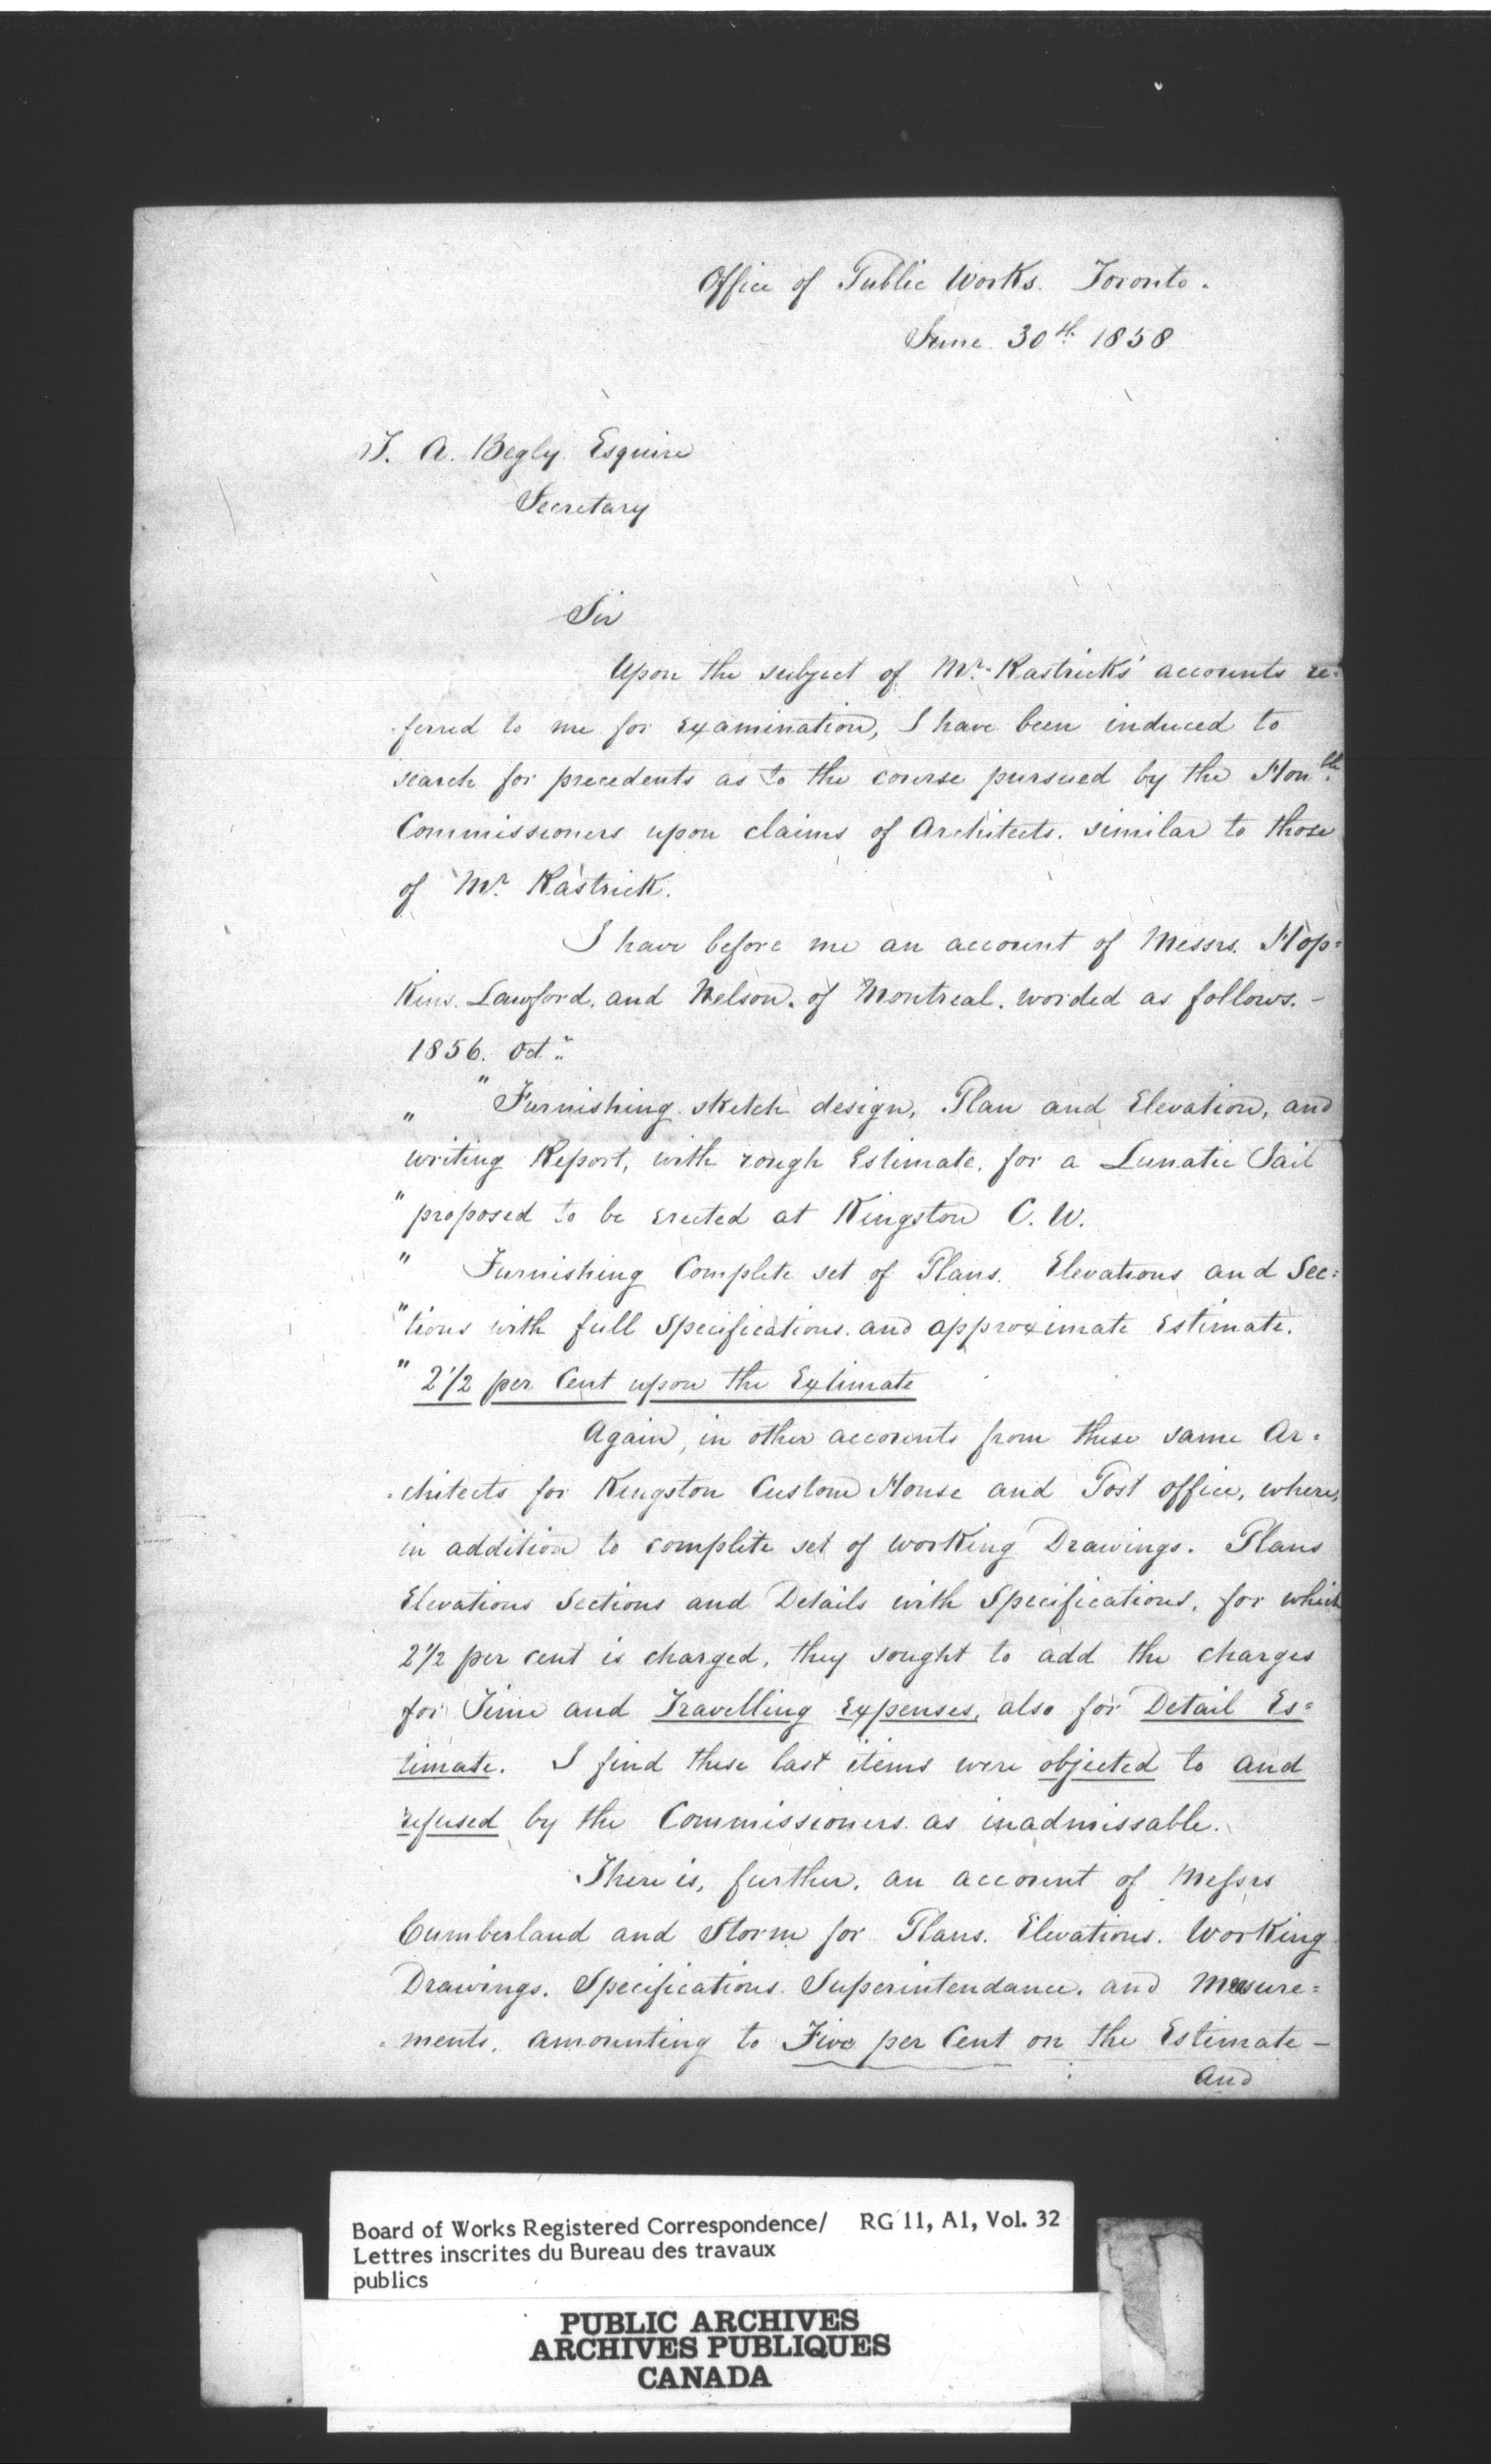 Office of Public Works. Toronto.
June 30th 1858
T. A. Begly Esquire
Secretary
Sir
Upon the subject of Mr. Kastricks' accounts re=
ferred to me for examination, I have been induced to
search for precedents as to the course pursued by the Honble.
Commissioners upon claims of Architects. similar to those
of Mr. Kastrick.
I have before me an account of Messrs. Hop=
kins. Lawford. and Nelson. of Montreal. worded as follows. -
1856. Octr.
" "Furnishing sketch design, Plan and Elevation, and
writing Report, with rough Estimate. for a Lunatic Jail
" proposed to be erected at Kingston C. W.
" Furnishing Complete set of Plans. Elevations and Sec=
" tions with full Specifications. and approximate Estimate.
" 2 1/2 per Cent upon the Extimate
Again, in other accounts from these same Ar=
chitects for Kingston Custom House and Post office, where,
in addition to complete set of working Drawings. Plans
Elevations Sections and Details with Specifications, for which
2 1/2 per cent is charged, they sought to add the charges
for Time and Travelling Expenses, also for Detail Es=
timate. I find these last items were objected to and
refused by the Commissioners as inadmissable.
There is, further, an account of Messrs
Cumberland and Storm for Plans. Elevations. Working
Drawings. Specifications Superintendance. and Measure=
ments, amounting to Five per Cent on the Estimate -
and
Board of Works Registered Correspondence/ RG 11, A1, Vol. 32
Lettres inscrites du Bureau des travaux
publics
PUBLIC ARCHIVES
ARCHIVES PUBLIQUES
CANADA